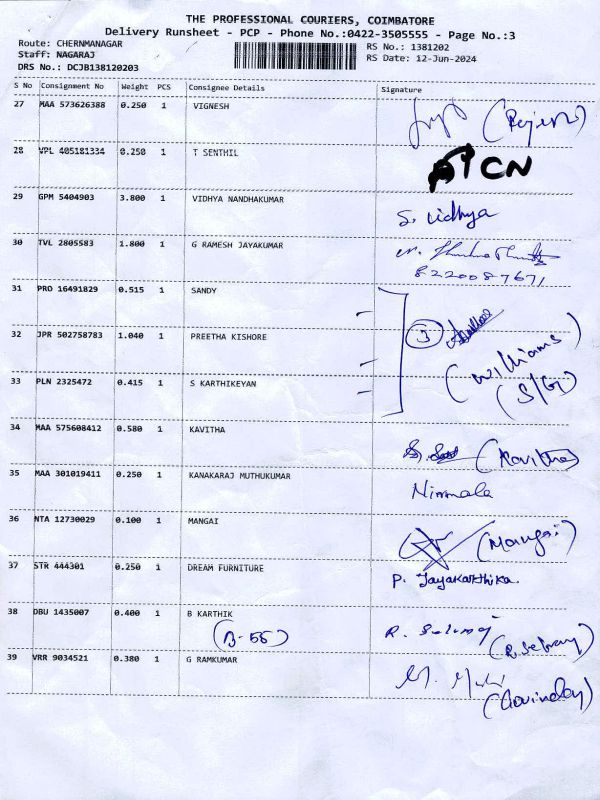 THE PROFESSIONAL COURIERS, COIMBATORE
Delivery Runsheet - PCP - Phone No.:0422-3505555 - Page No.:3
Route: CHERNMANAGAR
Staff: NAGARAJ
DRS No.: DCJB138120203
RS No.: 1381202
RS Date: 12-Jun-2024
S No Consignment No Weight PCS Consignee Details Signature
27 MAA 573626388 0.250 1 VIGNESH
28 VPL 405181334 0.250 1 T SENTHIL CN
29 GPM 5404903 3.800 1 VIDHYA NANDHAKUMAR S. Vidhya
30 TVL 2805583 1.800 1 G RAMESH JAYAKUMAR
8220087671
31 PRO 16491829 0.515 1 SANDY
32 JPR 502758783 1.040 1 PREETHA KISHORE 3
(Williams)
33 PLN 2325472 0.415 1 S KARTHIKEYAN (S/G)
34 MAA 575608412 0.580 1 KAVITHA (Kavitha)
35 MAA 301019411 0.250 1 KANAKARAJ MUTHUKUMAR Nirmala
36 NTA 12730029 0.100 1 MANGAI (Mangai)
37 STR 444301 0.250 1 DREAM FURNITURE P. Jayakarthika.
38 DBU 1435007 0.400 1 B KARTHIK
(B-55)
39 VRR 9034521 0.380 1 G RAMKUMAR